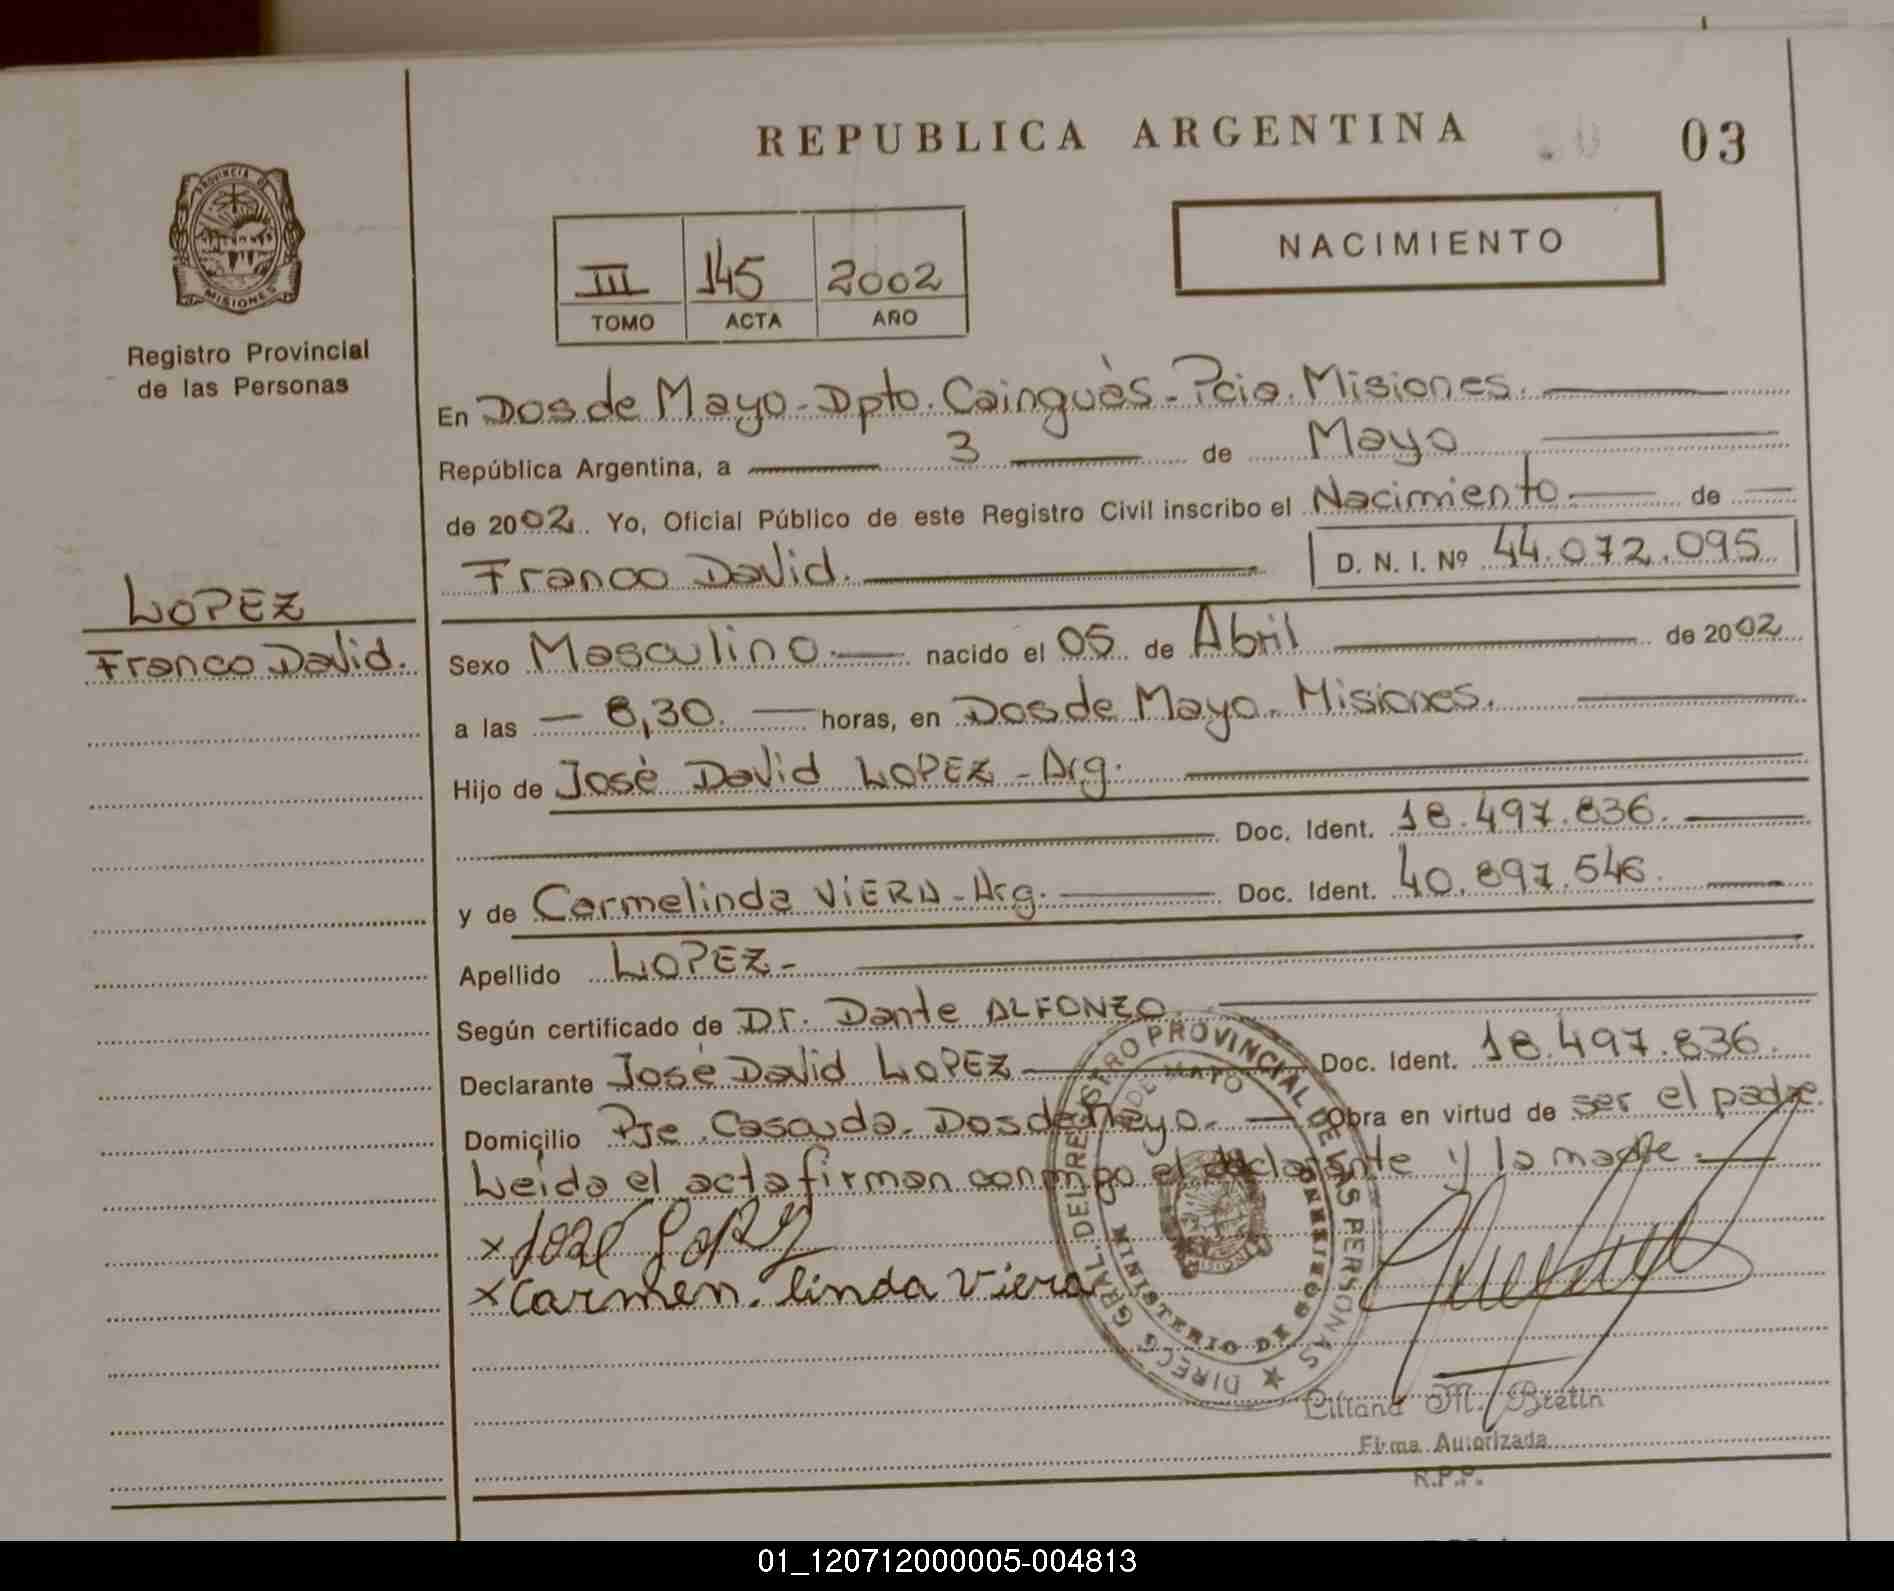 REPUBLICA ARGENTINA
03
PROVINCIA DE
MISIONES
Registro Provincial
de las Personas
III 145 2002
TOMO ACTA AÑO
NACIMIENTO
En Dos de Mayo - Dpto. Cainguàs - Pcia. Misiones.
República Argentina, a 3 de Mayo
de 2002. Yo, Oficial Público de este Registro Civil inscribo el Nacimiento de
Franco David. D. N. I. Nº 44.072.095
LOPEZ
Franco David.
Sexo Masculino nacido el 05 de Abril de 2002
a las 8,30. horas, en Dos de Mayo. Misiones.
Hijo de José David LOPEZ - Arg.
Doc. Ident. 18.497.836.
y de Carmelinda ViERA - Arg. Doc. Ident. 40.897.546.
Apellido LOPEZ -
Según certificado de Dr. Dante ALFONZO.
Declarante José David LOPEZ Doc. Ident. 18.497.836.
Domicilio Pje. Casauda. Dos de Mayo. Obra en virtud de ser el padre.
Leida el acta firman conmigo el declarante y la madre.
x José Lopez
x Carmen. linda Viera
DIRECC. GRAL. DEL REGISTRO PROVINCIAL DE LAS PERSONAS
DOS DE MAYO
MINISTERIO DE GOBIERNO
Liliana M. Bretin
Firma Autorizada
R.P.P.
01_120712000005-004813